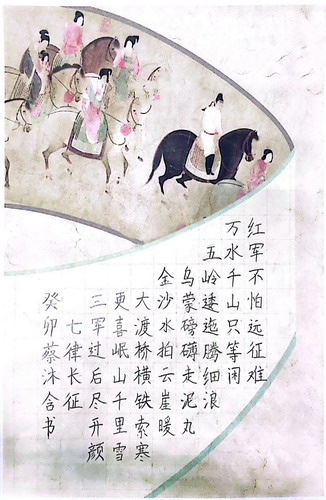 红军不怕远征难
万水千山只等闲
五岭逶迤腾细浪
乌蒙磅礴走泥丸
金沙水拍云崖暖
大渡桥横铁索寒
更喜岷山千里雪
三军过后尽开颜
七律长征
癸卯蔡沐含书